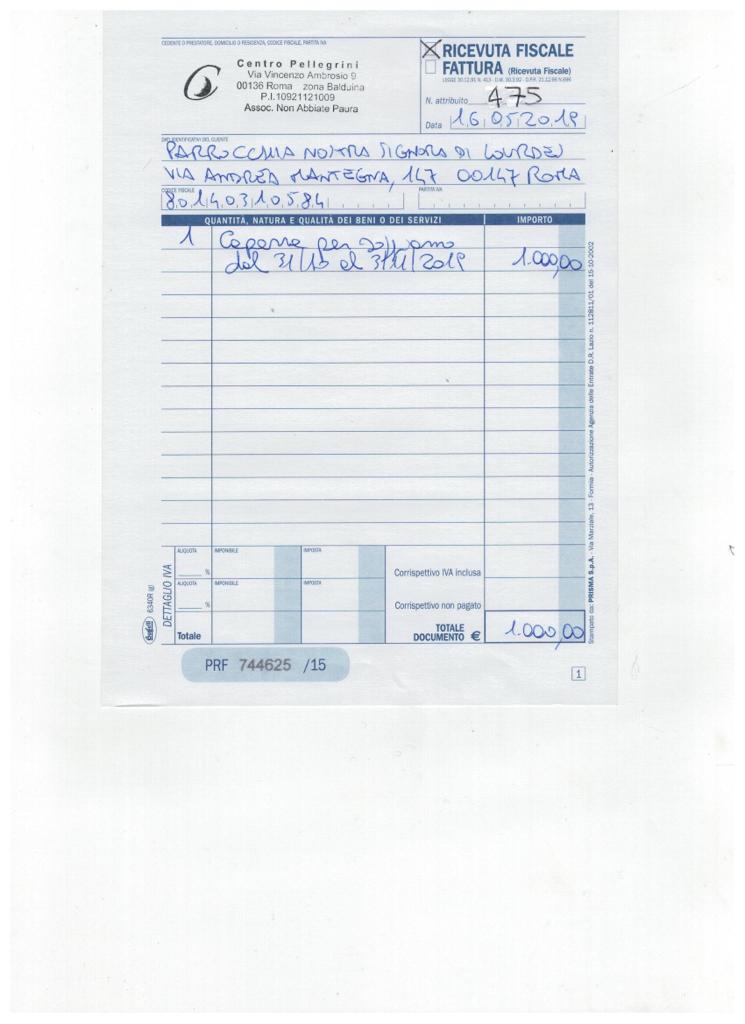 CEDENTE O PRESTATORE, DOMICILIO O RESIDENZA, CODICE FISCALE, PARTITA IVA
Centro Pellegrini
Via Vincenzo Ambrosio 9
00136 Roma zona Balduina
P.I.10921121009
Assoc. Non Abbiate Paura
X RICEVUTA FISCALE
FATTURA (Ricevuta Fiscale)
N. attribuito 475
Data 16052019
DATI IDENTIFICATIVI DEL CLIENTE
PARROCCHIA NOSTRA SIGNORA DI LOURDES
VIA ANDREA MANTEGNA, 147 00147 ROMA
CODICE FISCALE
PARTITA IVA
80140310584
QUANTITÀ, NATURA E QUALITÀ DEI BENI O DEI SERVIZI
IMPORTO
1 Caparra per
dal 31/10 al 2019 1.000,00
ALIQUOTA IMPONIBILE IMPOSTA
%
Corrispettivo IVA inclusa
ALIQUOTA IMPONIBILE IMPOSTA
%
Corrispettivo non pagato
Totale
TOTALE
DOCUMENTO € 1.000,00
DETTAGLIO IVA
6340R (g)
PRF 744625 /15
1
Stampato da: PRISMA S.p.A. - Via Marziale, 13 - Formia - Autorizzazione Agenzia delle Entrate D.R. Lazio n. 112811/01 del 15-10-2002